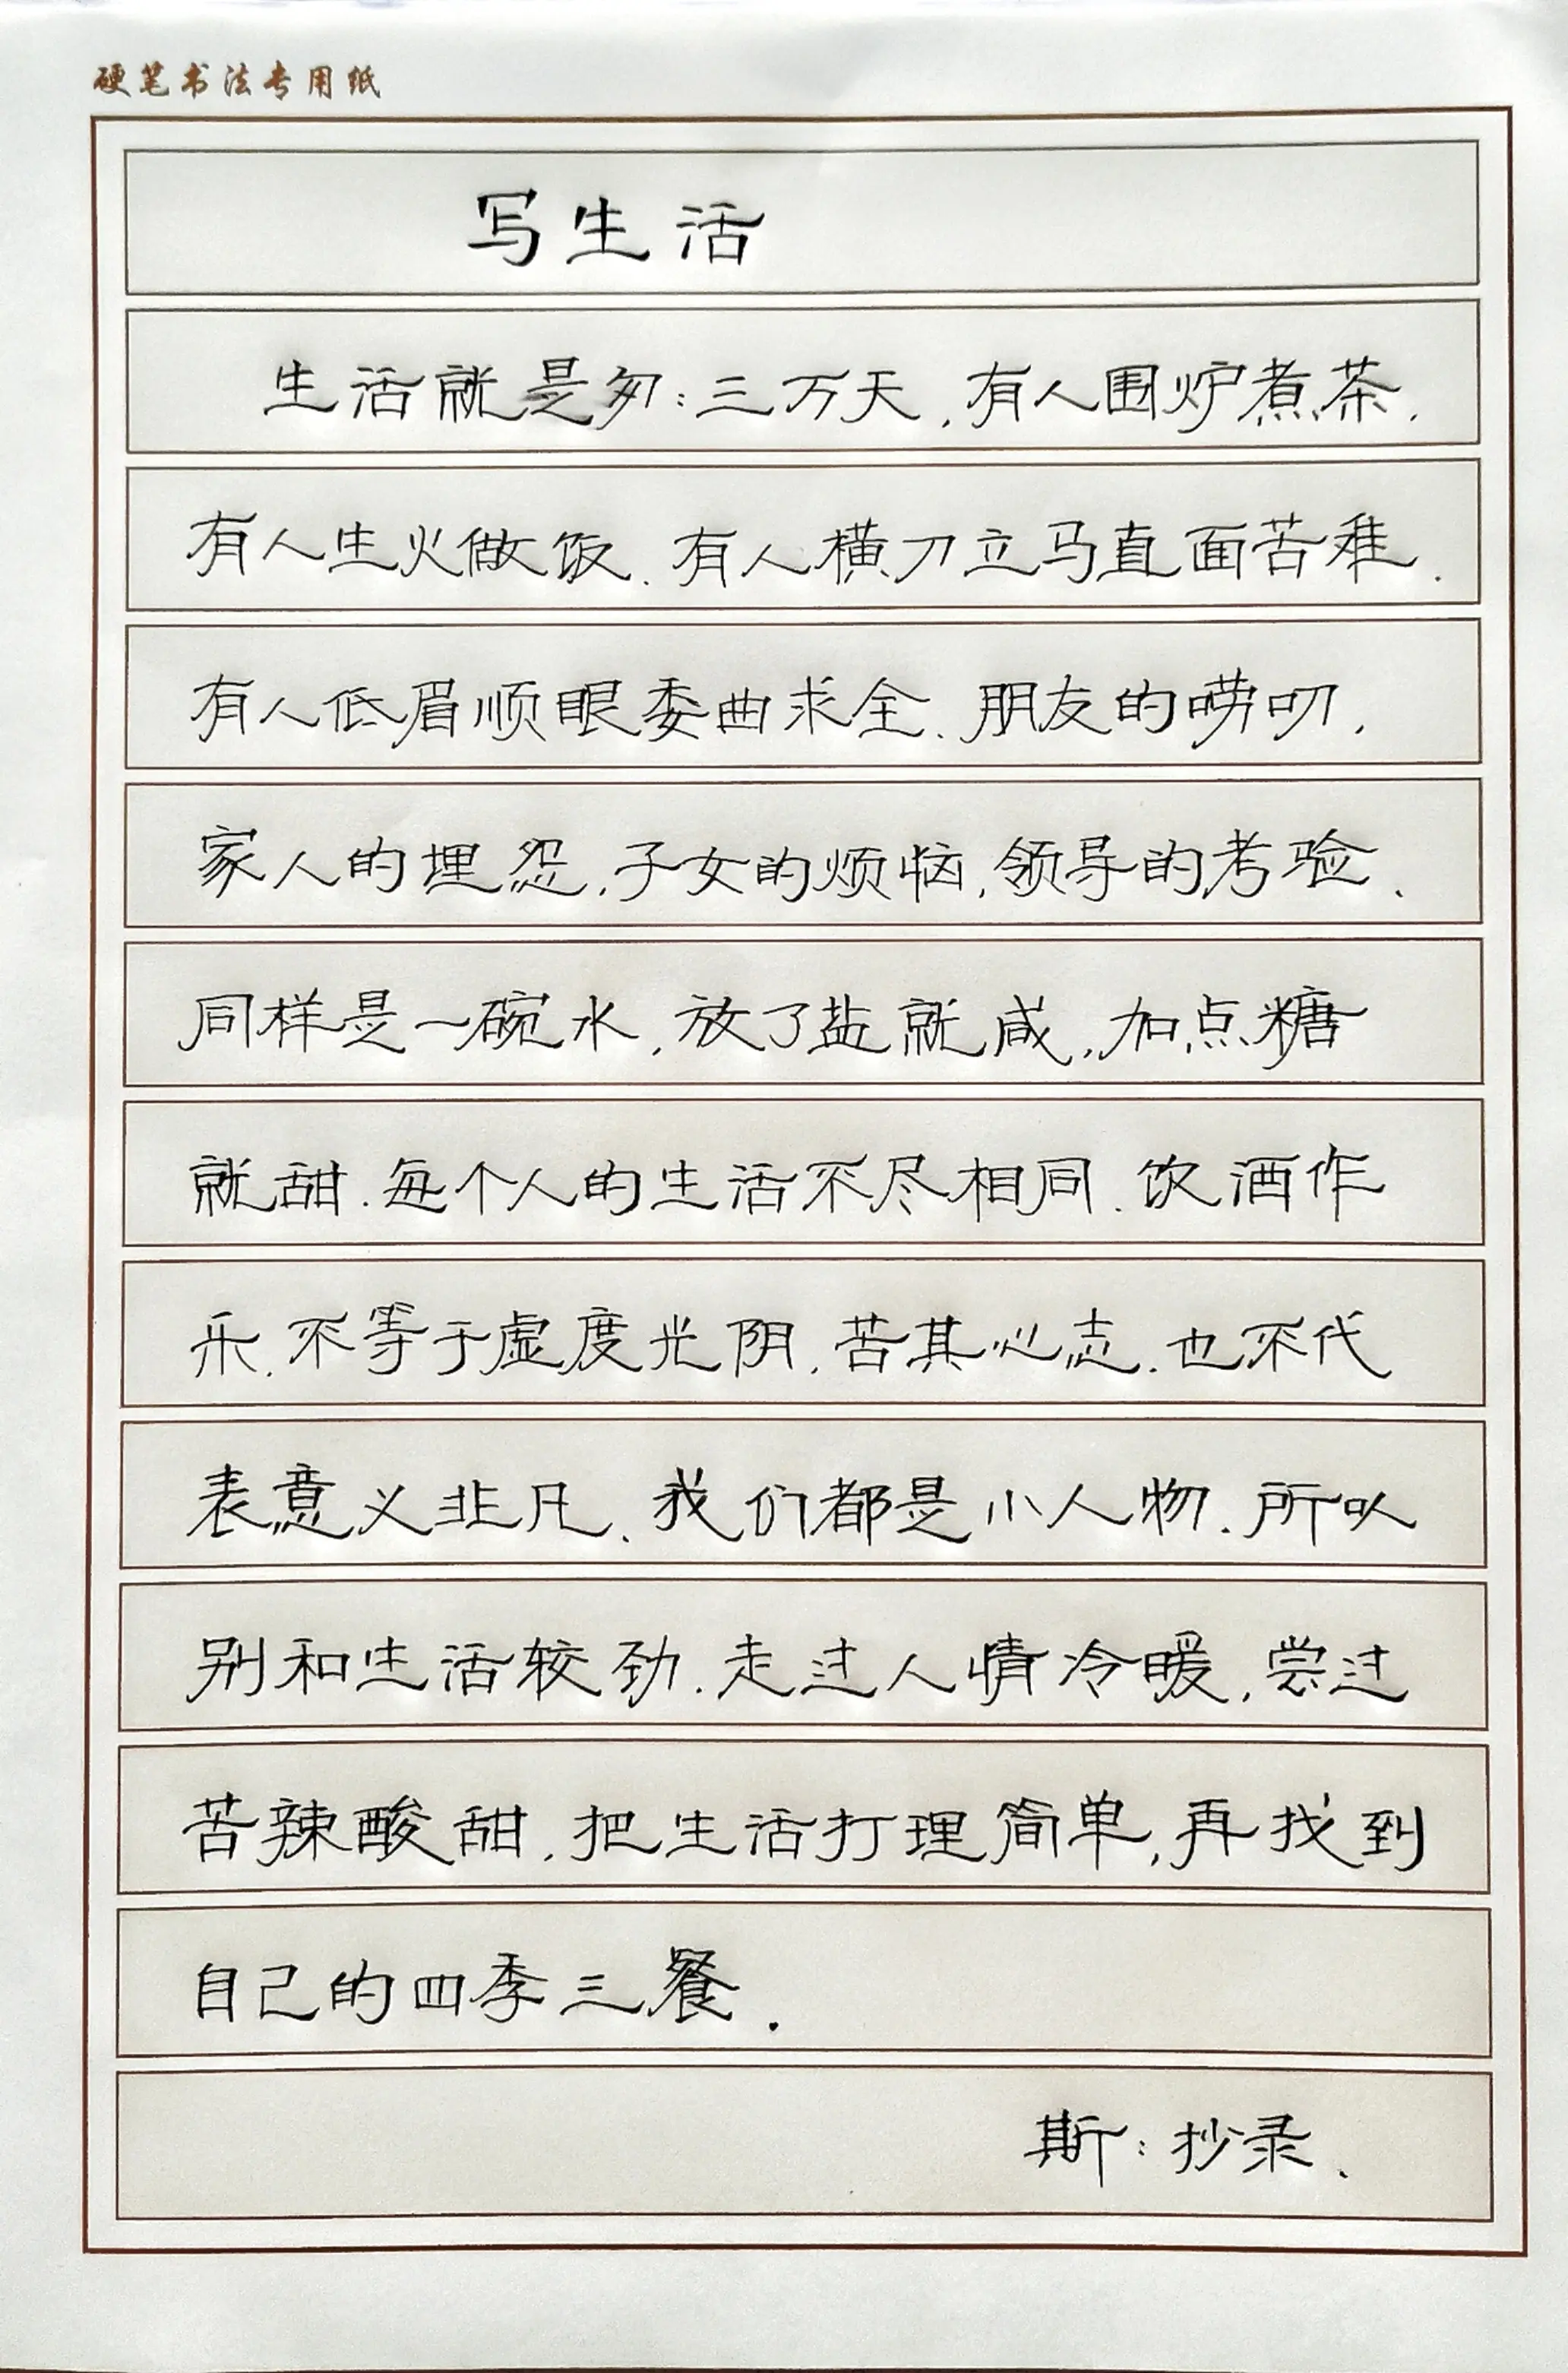 硬笔书法专用纸
写生活
生活就是匆:三万天,有人围炉煮茶.
有人生火做饭.有人横刀立马直面苦难.
有人低眉顺眼委曲求全.朋友的唠叨,
家人的埋怨,子女的烦恼,领导的考验.
同样是一碗水,放了盐就咸,加点糖
就甜.每个人的生活不尽相同.饮酒作
乐.不等于虚度光阴.苦其心志.也不代
表意义非凡.我们都是小人物.所以
别和生活较劲.走过人情冷暖,尝过
苦辣酸甜.把生活打理简单,再找到
自己的四季三餐.
斯:抄录.